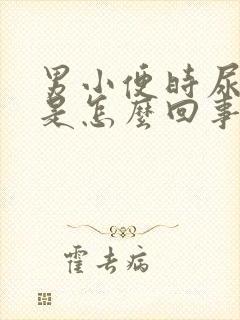 男小便时尿
是怎麼回事
霍去病